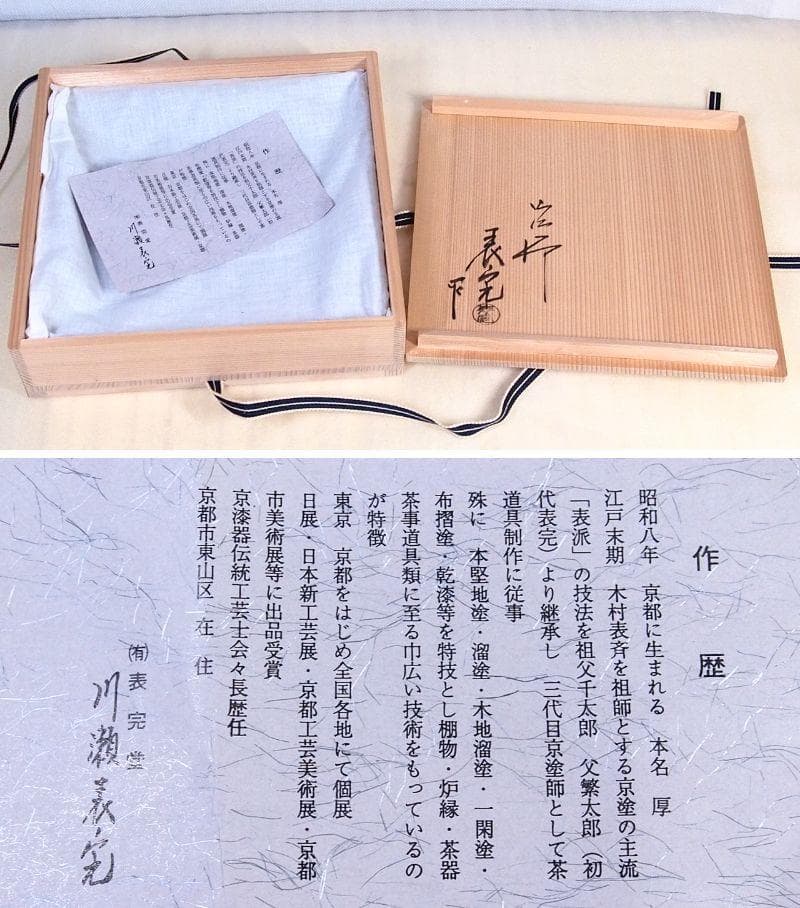 塗師
表完
作歴
昭和八年 京都に生まれる 本名 厚
江戸末期 木村表斉を祖師とする京塗の主流
「表派」の技法を祖父千太郎 父繁太郎(初
代表完)より継承し 三代目京塗師として茶
道具制作に従事
殊に 本堅地塗・溜塗・木地溜塗・一閑塗・
布摺塗・乾漆等を特技とし棚物・炉縁・茶器
茶事道具類に至る巾広い技術をもっているの
が特徴
東京 京都をはじめ全国各地にて個展
日展・日本新工芸展・京都工芸美術展・京都
市美術展等に出品受賞
京漆器伝統工芸士会々長歴任
京都市東山区 在住
㈲表完堂
川瀬表完